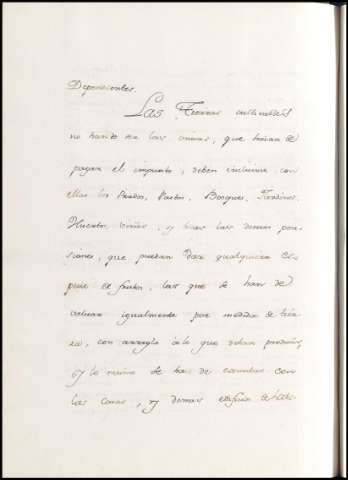 Dependientes.
Las Tierras cultivables
no han de ser las unicas, que hàian de
pagar el impuesto, deben incluirse con
ellas los Prados, Pastos, Bosques,
Huertos, Viñas, y todas las demas pose-
siones, que puedan dar qualquiera es-
pecie de frutos, las que se han de
valuar igualmente por medida de tier-
ra, con arreglo à lo que deban producir,
y lo mismo se han de executar con
las casas, y demas edificios de habi-